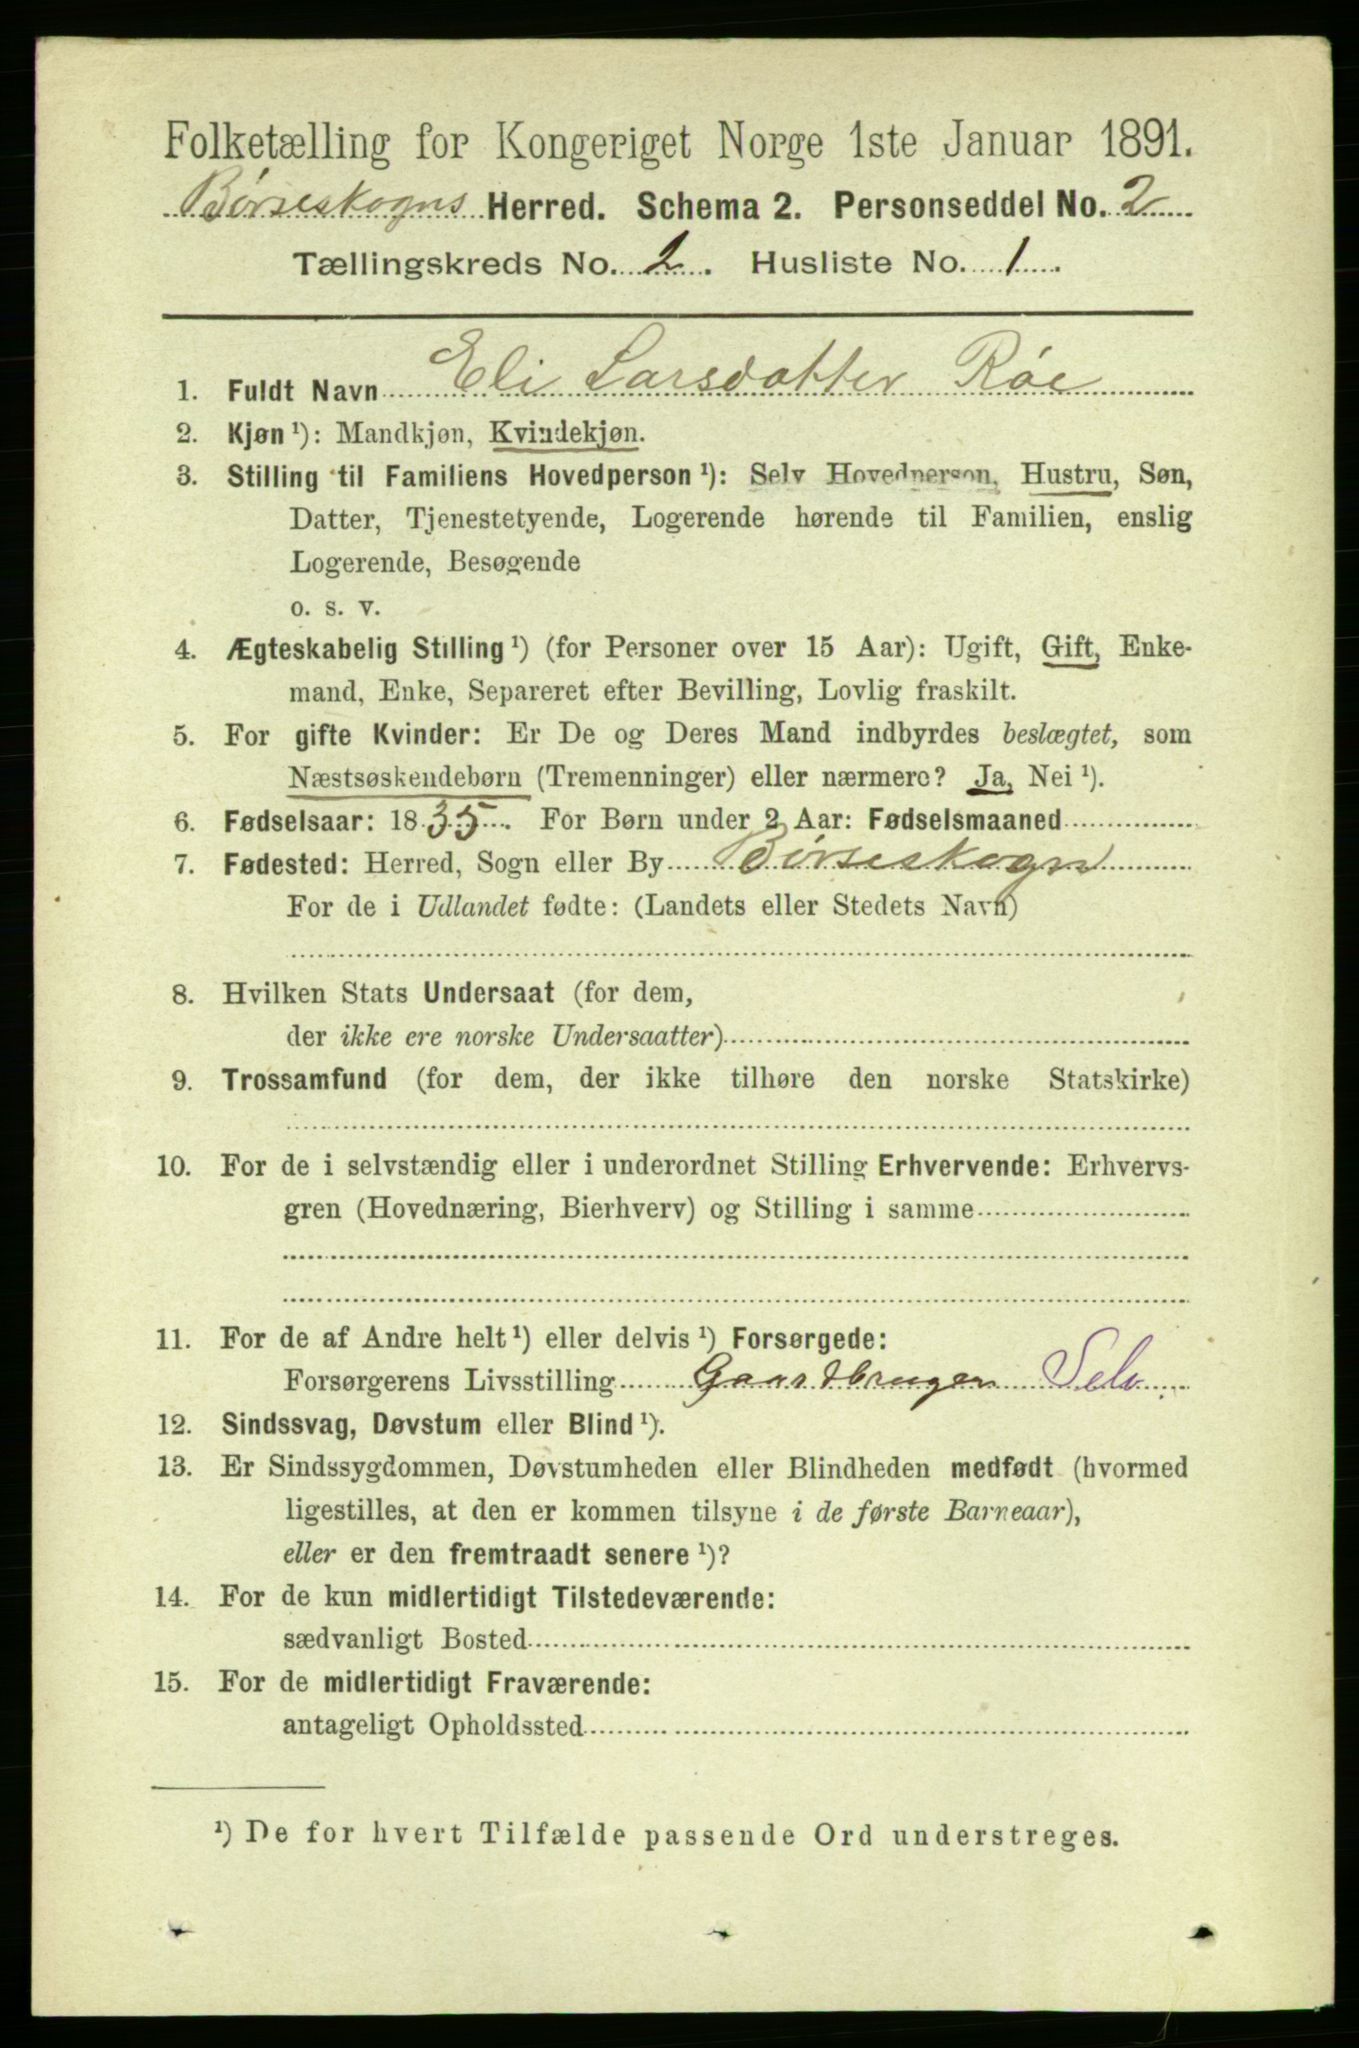 Folketælling for Kongeriget Norge 1ste Januar 1891.
Børseskogns Herred. Schema 2. Personseddel No. 2
Tællingskreds No. 2. Husliste No. 1.
1. Fuldt Navn Eli Larsdatter Røe
2. Kjøn ¹): Mandkjøn, Kvindekjøn.
3. Stilling til Familiens Hovedperson ¹): Selv Hovedperson, Hustru, Søn,
Datter, Tjenestetyende, Logerende hørende til Familien, enslig
Logerende, Besøgende
o. s. v.
4. Ægteskabelig Stilling ¹) (for Personer over 15 Aar): Ugift, Gift, Enke-
mand, Enke, Separeret efter Bevilling, Lovlig fraskilt.
5. For gifte Kvinder: Er De og Deres Mand indbyrdes beslægtet, som
Næstsøskendebørn (Tremenninger) eller nærmere? Ja, Nei ¹).
6. Fødselsaar: 1835. For Børn under 2 Aar: Fødselsmaaned
7. Fødested: Herred, Sogn eller By Børseskogn
For de i Udlandet fødte: (Landets eller Stedets Navn)
8. Hvilken Stats Undersaat (for dem,
der ikke ere norske Undersaatter)
9. Trossamfund (for dem, der ikke tilhøre den norske Statskirke)
10. For de i selvstændig eller i underordnet Stilling Erhvervende: Erhvervs-
gren (Hovednæring, Bierhverv) og Stilling i samme
11. For de af Andre helt ¹) eller delvis ¹) Forsørgede:
Forsørgerens Livsstilling Gaardbruger Selv.
12. Sindssvag, Døvstum eller Blind ¹).
13. Er Sindssygdommen, Døvstumheden eller Blindheden medfødt (hvormed
ligestilles, at den er kommen tilsyne i de første Barneaar),
eller er den fremtraadt senere ¹)?
14. For de kun midlertidigt Tilstedeværende:
sædvanligt Bosted
15. For de midlertidigt Fraværende:
antageligt Opholdssted
¹) De for hvert Tilfælde passende Ord understreges.